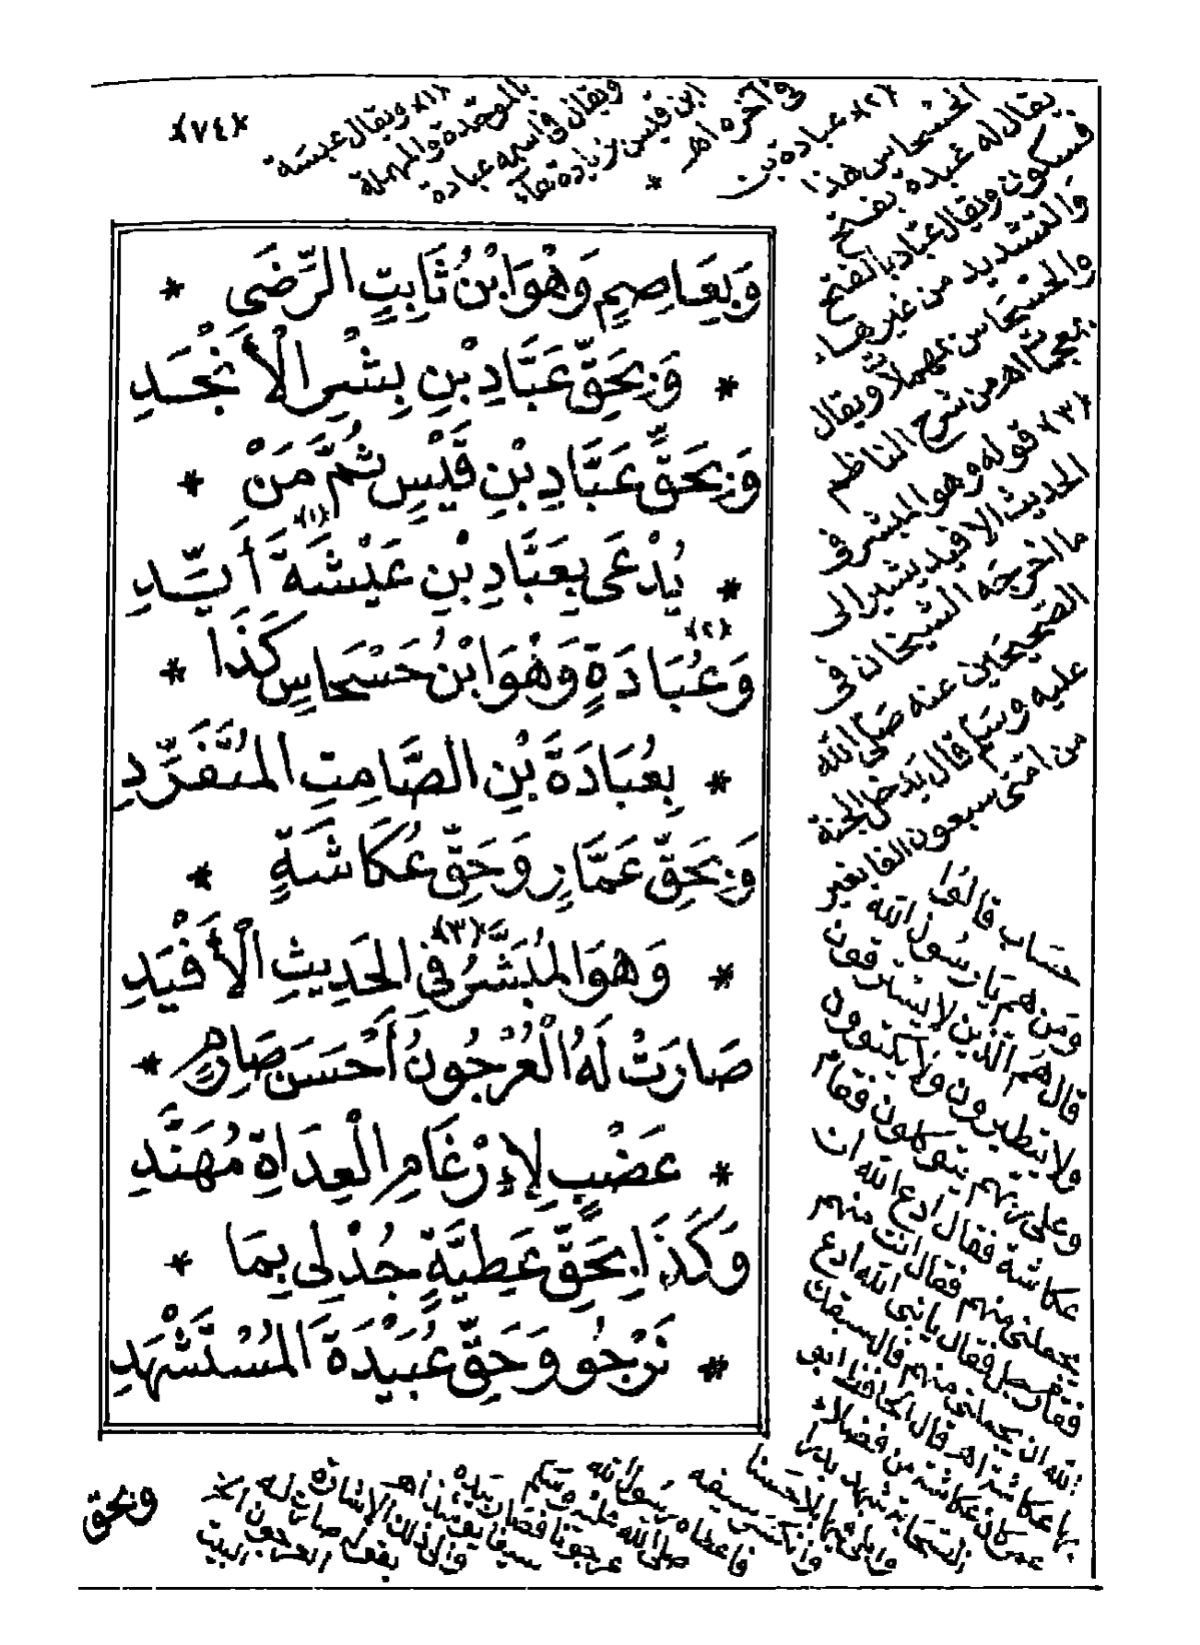 ﴿٧٤﴾
وَبِعَاصِمٍ وَهُوَ ابْنُ ثَابِتٍ الرَّضَى *
* وَبِحَقِّ عَبَّادِ بْنِ بِشْرِ الْأَنْجَدِ
وَبِحَقِّ عَبَّادِ بْنِ قَيْسٍ ثُمَّ مَنْ *
* يُدْعَى بِعَبَّادِ بْنِ عَيْشَةَ ﴿١﴾ أَيِّدِ
وَعُبَادَةٍ ﴿٢﴾ وَهُوَ ابْنُ حَسْحَاسٍ كَذَا *
* بِعُبَادَةَ بْنِ الصَّامِتِ الْمُتَفَرِّدِ
وَبِحَقِّ عَمَّارٍ وَحَقِّ عُكَاشَةٍ *
* وَهُوَ الْمُبَشَّرُ ﴿٣﴾ فِي الْحَدِيثِ الْأَفْيَدِ
صَارَتْ لَهُ الْعُرْجُونُ أَحْسَنَ صَارِمٍ *
* عَضْبٍ لِإِرْغَامِ الْعِدَاةِ مُهَنَّدِ
وَكَذَا بِحَقِّ عَطِيَّةٍ جُدْ لِي بِمَا *
* نَرْجُو وَحَقِّ عُبَيْدَةَ الْمُسْتَشْهَدِ
﴿١﴾ ويقال عبسة
بالموحدة والمهملة
ويقال في اسمه عبادة
ابن قيس بزيادة هاء
في آخره اهـ *
﴿٢﴾ عبادة بن
الخشحاش هذا
يقال له عبدة بفتح
فسكون ويقال عباد بالفتح
والتشديد من غير هاء
والحسحاس بمهملات ويقال
بمعجمات اهـ من شرح الناظم
﴿٣﴾ قوله وهو المبشر في
الحديث الافيد يشير الى
ما اخرجه الشيخان في
الصحيحين عنه صلى الله
عليه وسلم قال يدخل الجنة
من امتي سبعون الفا بغير
حساب قالوا
ومن هم يا رسول الله
قال هم الذين لا يسترقون
ولا يتطيرون ولا يكتوون
وعلى ربهم يتوكلون فقام
عكاشة فقال ادع الله ان
يجعلني منهم فقال انت منهم
فقام رجل فقال يا نبي الله ادع
الله ان يجعلني منهم قال سبقك
بها عكاشة اهـ قال الحافظ ابو
عمر كان عكاشة من فضلاء
الصحابة شهد بدرا
وابلى فيها بلاء حسنا
وانكسر سيفه
فاعطاه رسول الله
صلى الله عليه وسلم
عرجونا فصار بيده
سيفا
والى ذلك الاشارة
بقوله صارت له
العرجون البيت
وبحق